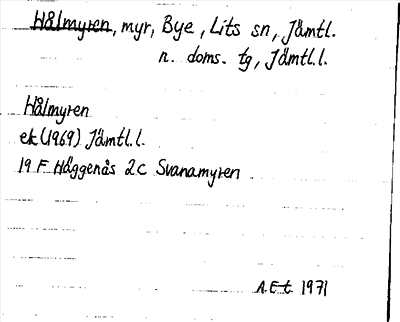 Hålmyren, myr, Bye, Lits sn, Jämtl.
n. doms. tg, Jämtl.l.
Hålmyren
ek (1969) Jämtl.l.
19 F Häggenås 2c Svanamyren
A.E-t 1971